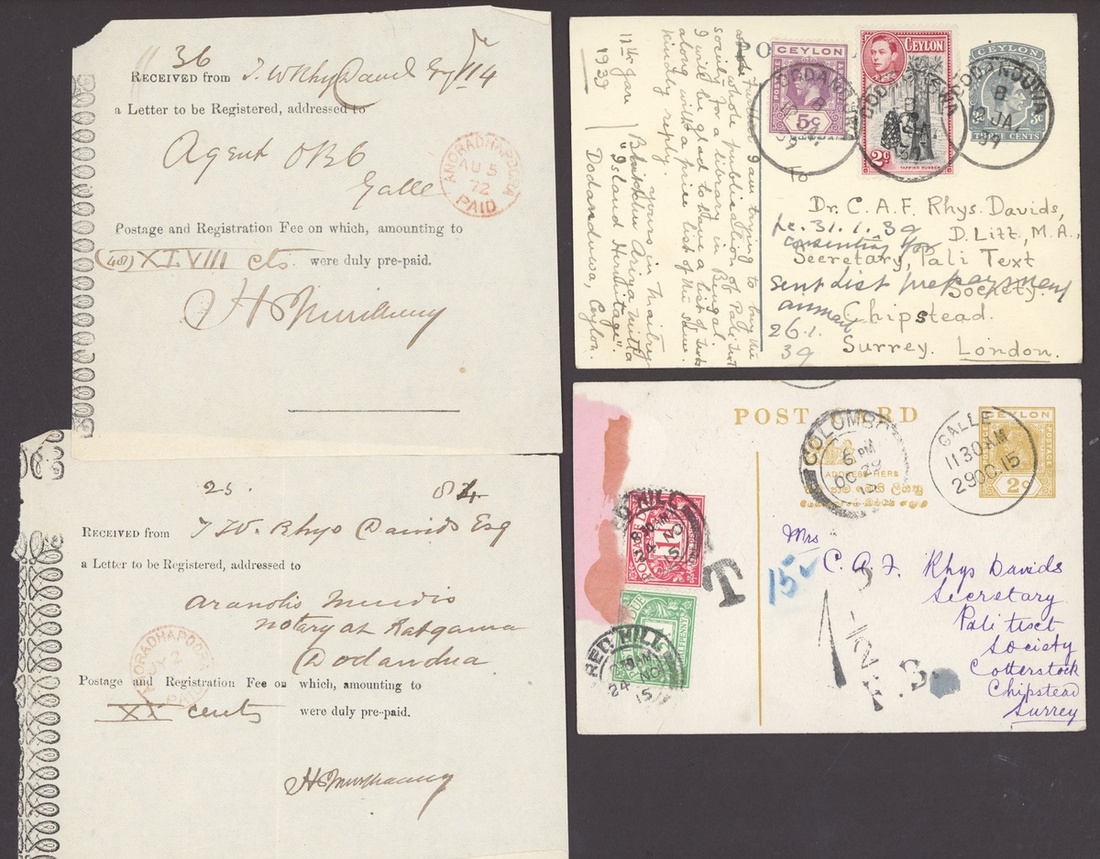 36
RECEIVED from T. W Rhys Davids Esqr 114
a Letter to be Registered, addressed to
Agent OBC
Galle
ANORADHAPOORA
AU 5
72
PAID
Postage and Registration Fee on which, amounting to
(48) XLVIII cts were duly pre-paid.
25. 84
RECEIVED from T W. Rhys Davids Esq
a Letter to be Registered, addressed to
notary at Ratgama
Dodandua
Postage and Registration Fee on which, amounting to
XX cents were duly pre-paid.
POST
CEYLON
POSTAGE
5c
CEYLON
2c
TAPPING RUBBER
CEYLON
3c 3c
THREE CENTS
DODANDUWA
B
JA
39
I am trying to buy the
whole publication of Pali Text
society for a library in Bengal
I will be glad to have a list of texts
along with a price list of the same.
Kindly reply
yours in maitrey
Bhikkhu Ariya Mitta
"Island Hermitage".
Dodanduwa, Ceylon.
11th Jan
1939
To
Dr. C. A. F. Rhys. Davids,
D. Litt, M.A.,
Secretary, Pali Text
Society.
Chipstead.
Surrey. London.
31.1.39
sent list
26.1.
39
POST CARD
ADDRESS HERE
CEYLON
POSTAGE
2c
COLOMBO
6 PM
OC 29
15
GALLE
11 30 AM
29 OC 15
RED HILL
24 NO
15
RED HILL
24 NO
15
T
15
Mrs
C. A. F. Rhys Davids
Secretary
Pali text
Society
Cotterstock
Chipstead
Surrey